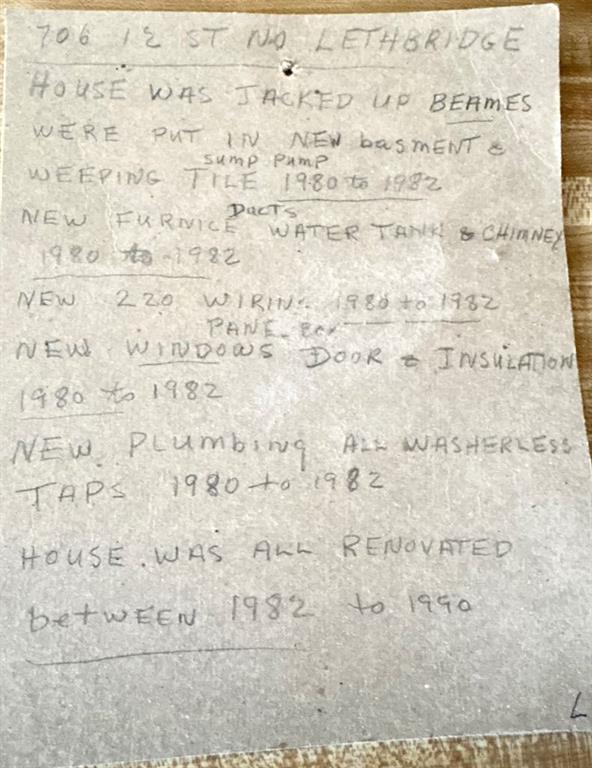 706 12 ST NO LETHBRIDGE
HOUSE WAS JACKED UP BEAMES
WERE PUT IN NEW basMENT &
SUMP PUMP
WEEPING TILE 1980 to 1982
DUCTS
NEW FURNICE WATER TANK & CHIMNEY
1980 to 1982
NEW 220 WIRING 1980 to 1982
PANEL BOX
NEW WINDOWS DOOR & INSULATION
1980 to 1982
NEW PLUMBING ALL WASHERLESS
TAPS 1980 to 1982
HOUSE WAS ALL RENOVATED
betWEEN 1982 to 1990
L